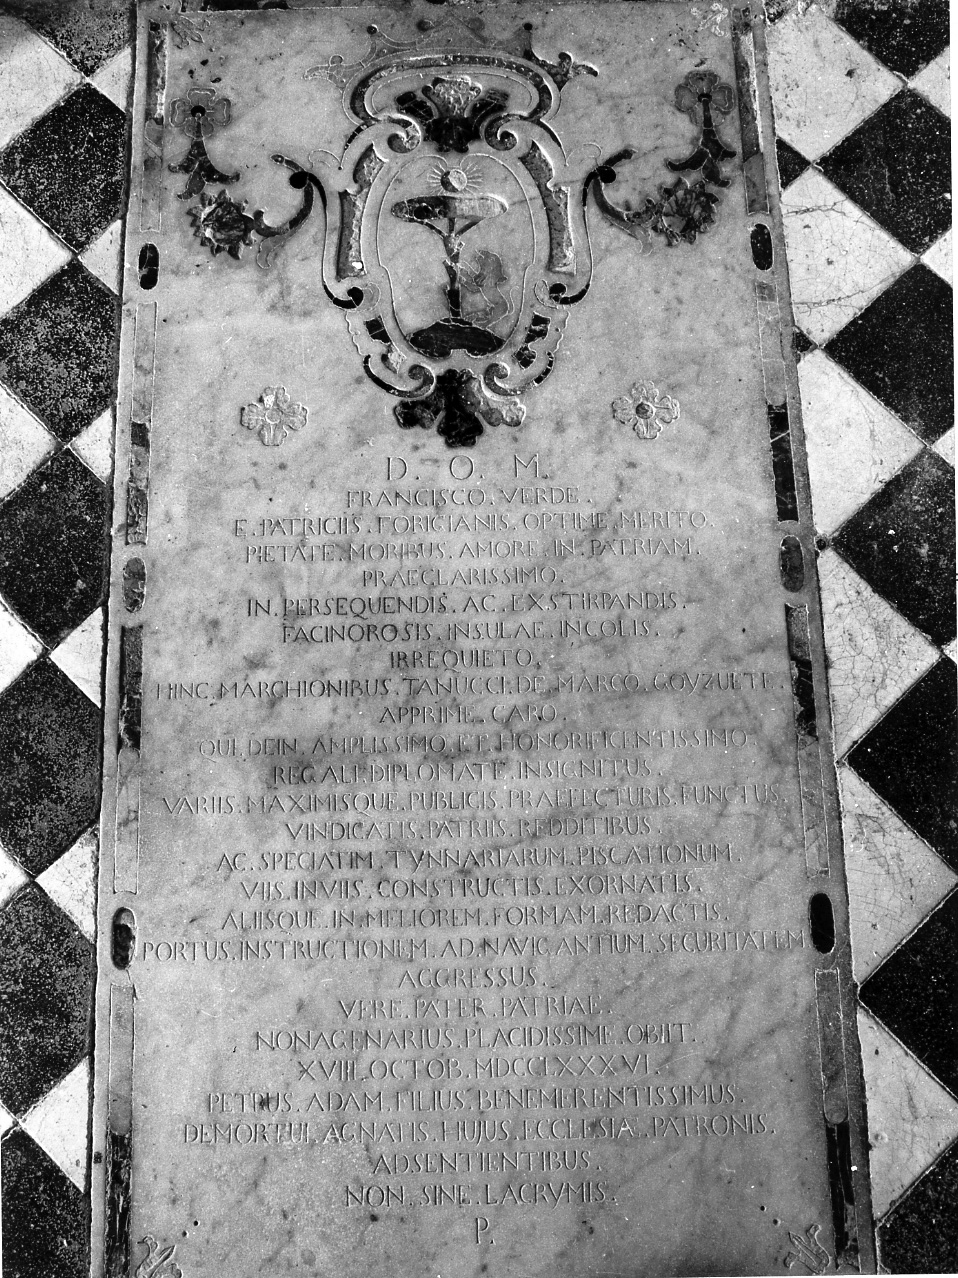 D. O. M.
FRANCISCO. VERDE.
E. PATRICIIS. FORICIANIS. OPTIME. MERITO.
PIETATE. MORIBUS. AMORE. IN. PATRIAM.
PRAECLARISSIMO.
IN. PERSEQUENDIS. AC. EXSTIRPANDIS.
FACINOROSIS. INSULAE. INCOLIS.
IRREQUIETO.
HINC. MARCHIONIBUS. TANUCCI. DE. MARCO. GOYZUETE.
APPRIME. CARO.
QUI. DEIN. AMPLISSIMO. ET. HONORIFICENTISSIMO.
REGALI. DIPLOMATE. INSIGNITUS.
VARIIS. MAXIMISQUE. PUBLICIS. PRAEFECTURIS. FUNCTUS.
VINDICATIS. PATRIIS. REDDITIBUS.
AC. SPECIATIM. TYNNARIARUM. PISCATIONUM.
VIIS. INVIIS. CONSTRUCTIS. EXORNATIS.
ALIISQUE. IN. MELIOREM. FORMAM. REDACTIS.
PORTUS. INSTRUCTIONEM. AD. NAVIGANTIUM. SECURITATEM
AGGRESSUS.
VERE. PATER. PATRIAE.
NONAGENARIUS. PLACIDISSIME. OBIIT.
XVIII. OCTOB. MDCCLXXXVI.
PETRUS. ADAM. FILIUS. BENEMERENTISSIMUS.
DEMORTUI. AGNATIS. HUJUS. ECCLESIA. PATRONIS.
ADSENTIENTIBUS.
NON. SINE. LACRYMIS.
P.